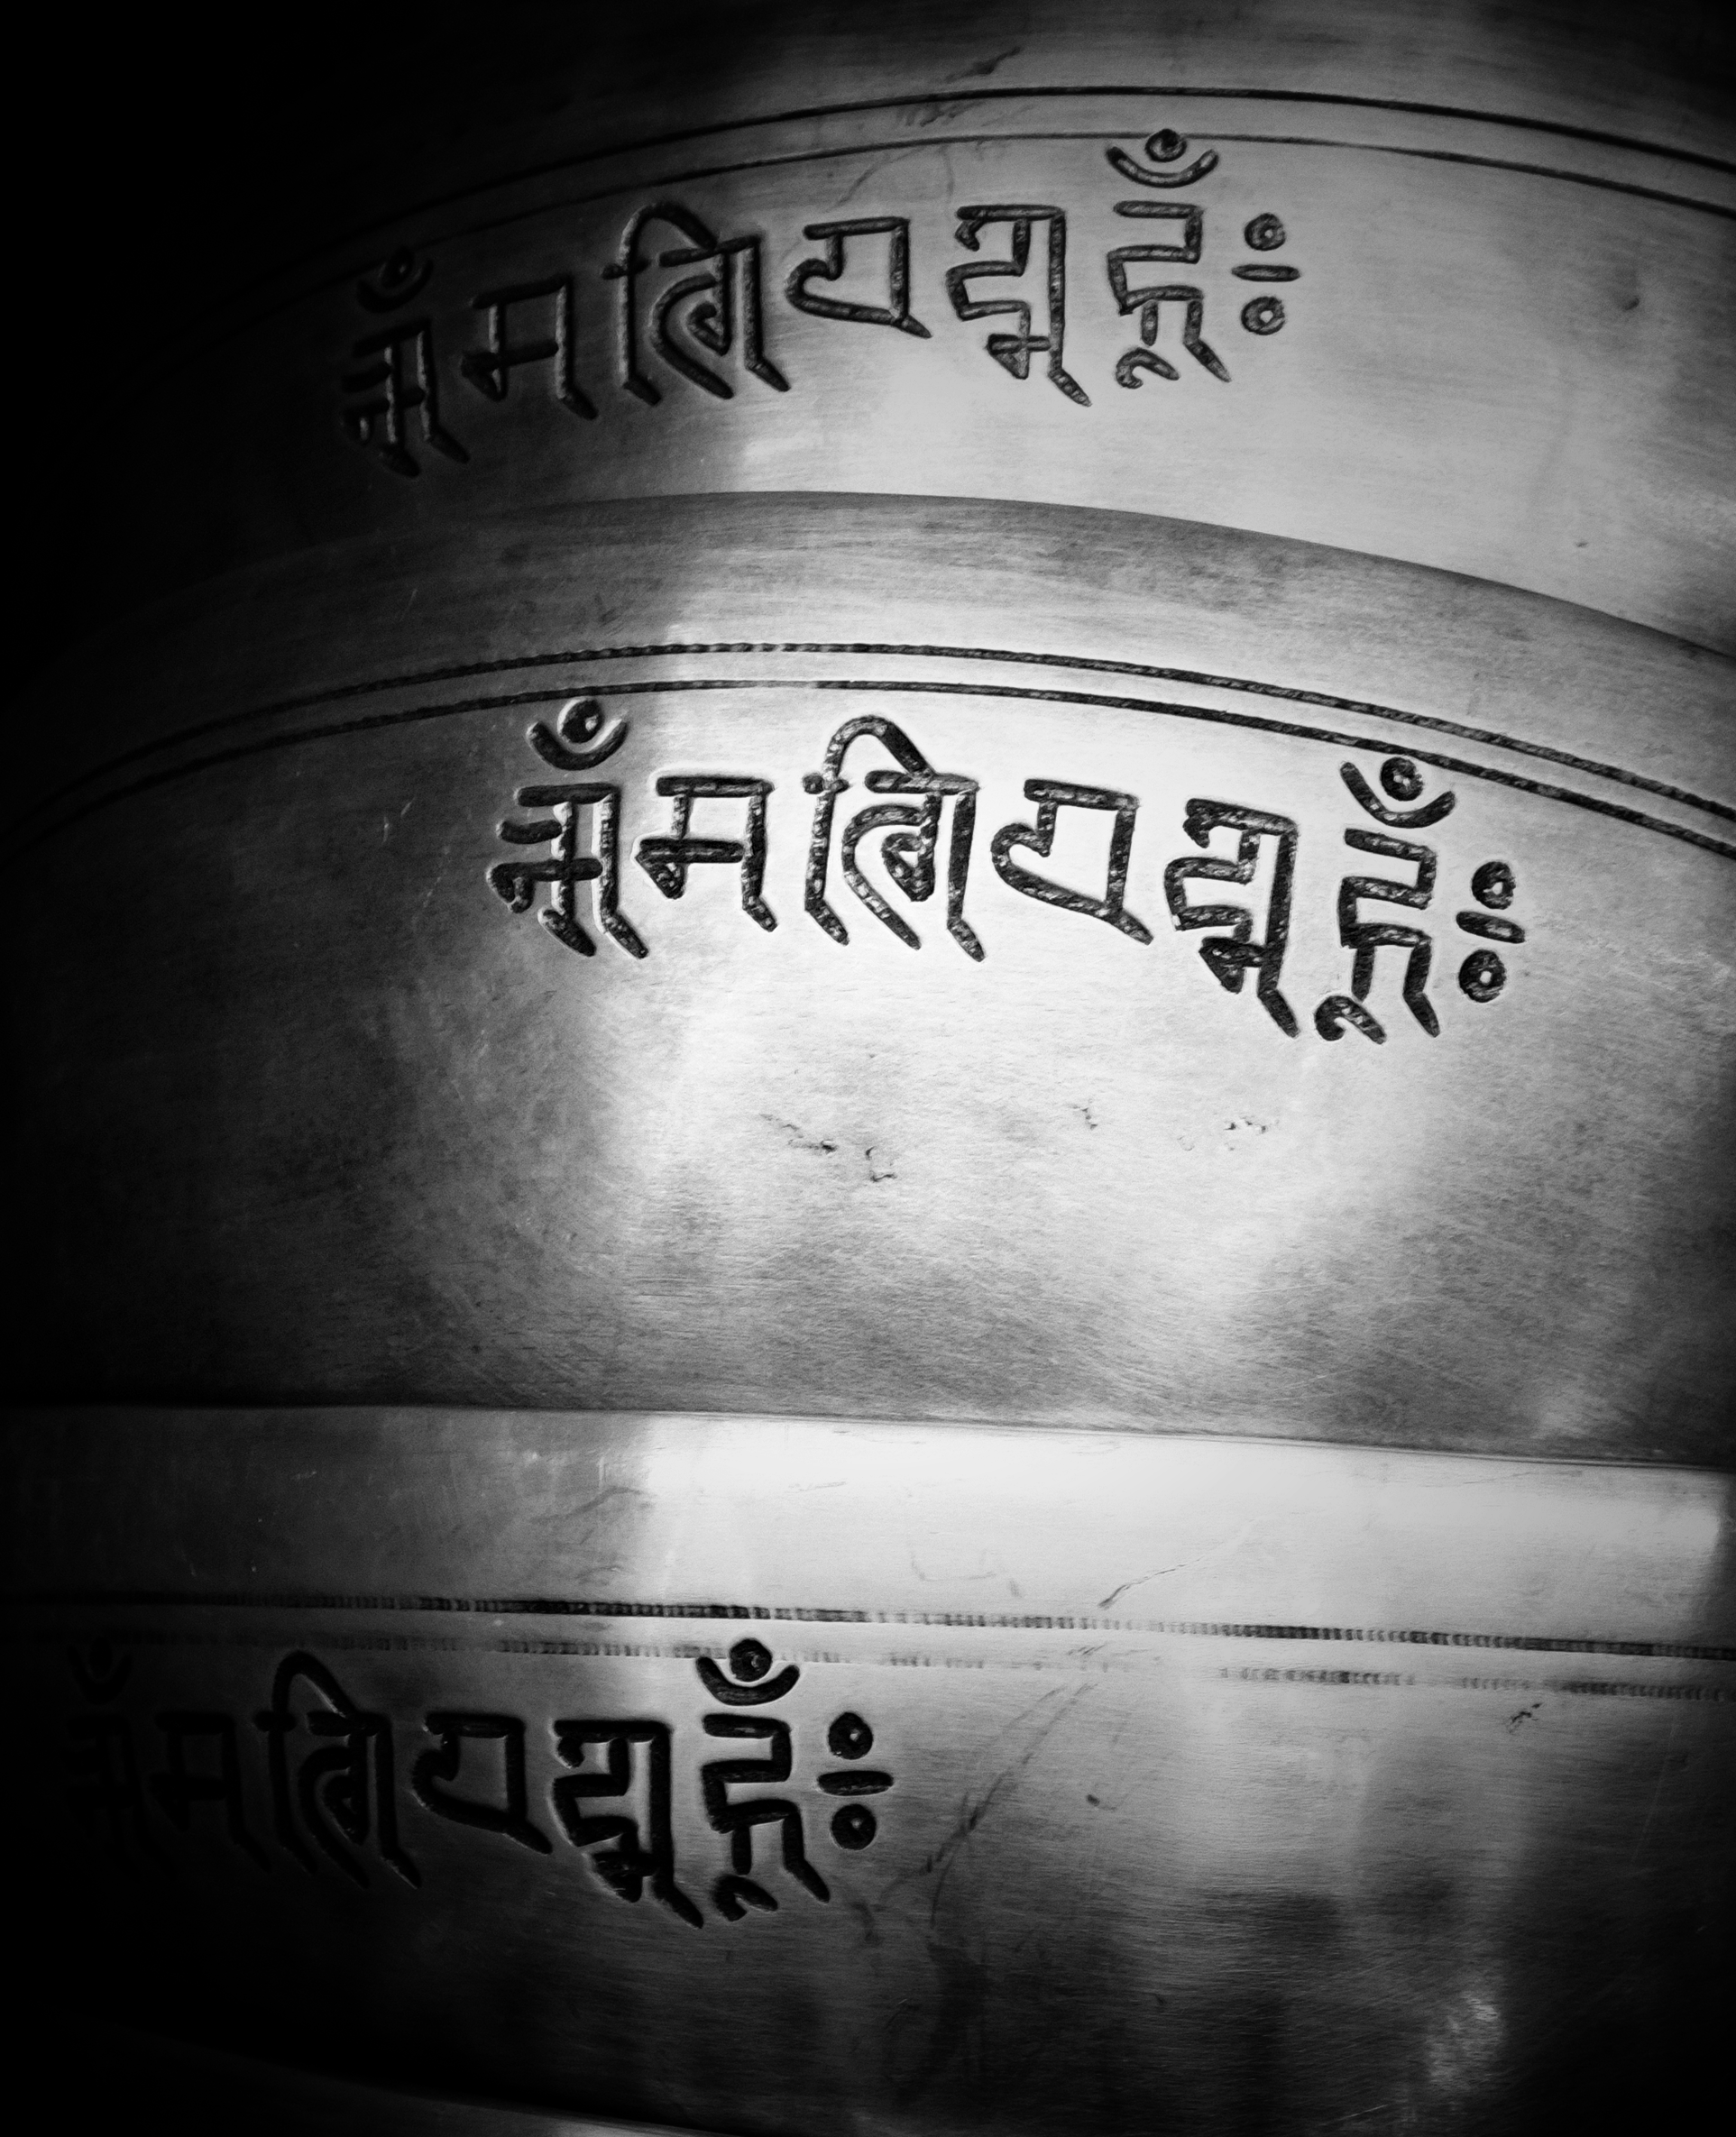 ॐ मणिपद्मे हूँः
ॐ मणिपद्मे हूँः
ॐ मणिपद्मे हूँः